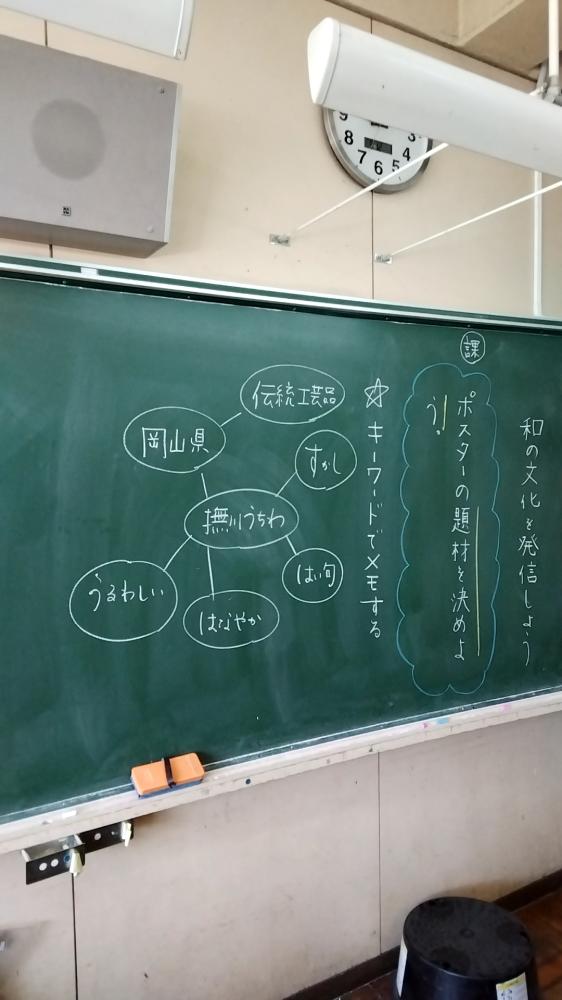 和の文化を発信しよう
課
ポスターの題材を決めよ
う。
☆キーワードでメモする
伝統工芸品
岡山県
すかし
撫川うちわ
はい句
うるわしい
はなやか
9
8
7
6
5
4
3